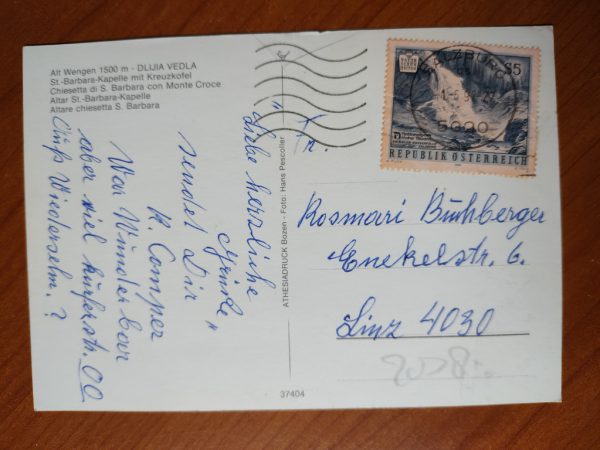 Alt Wengen 1500 m - DLIJIA VEDLA
St.-Barbara-Kapelle mit Kreuzkofel
Chiesetta di S. Barbara con Monte Croce
Altar St.-Barbara-Kapelle
Altare chiesetta S. Barbara
"Liebe herzliche
Grüße"
sendet Dir
K. Camper
War Wunderbar
aber viel
Wiedersehn. ?
ATHESIADRUCK Bozen - Foto: Hans Pescoller
37404
S5
SALZBURG
5020
REPUBLIK ÖSTERREICH
Fr.
Rosmari Buchberger
Enekelstr. 6.
Linz 4030